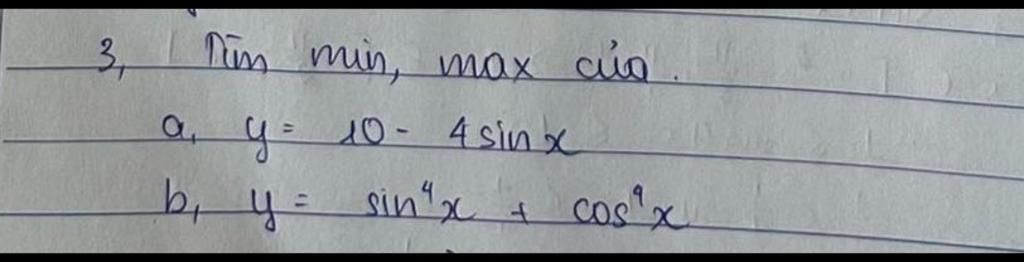 3, Tìm min, max của.
a, y = 10 - 4 sin x
b, y = sin⁴x + cos⁴x